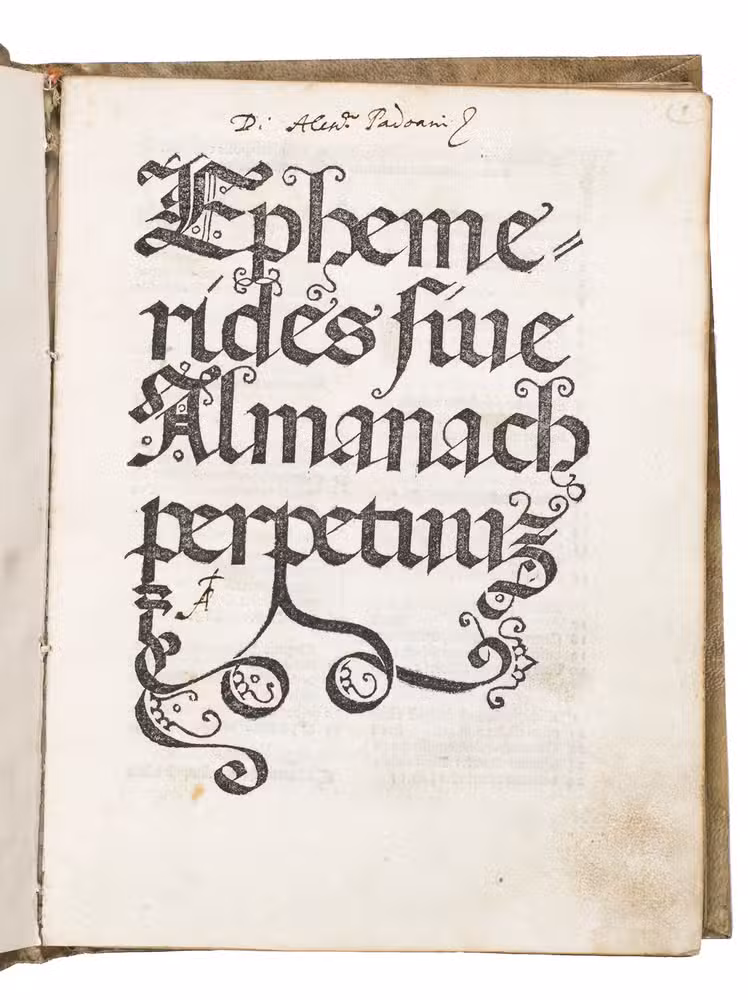 Di Alesdro Padoani
Epheme=
rides siue
Almanach
perpetuuz